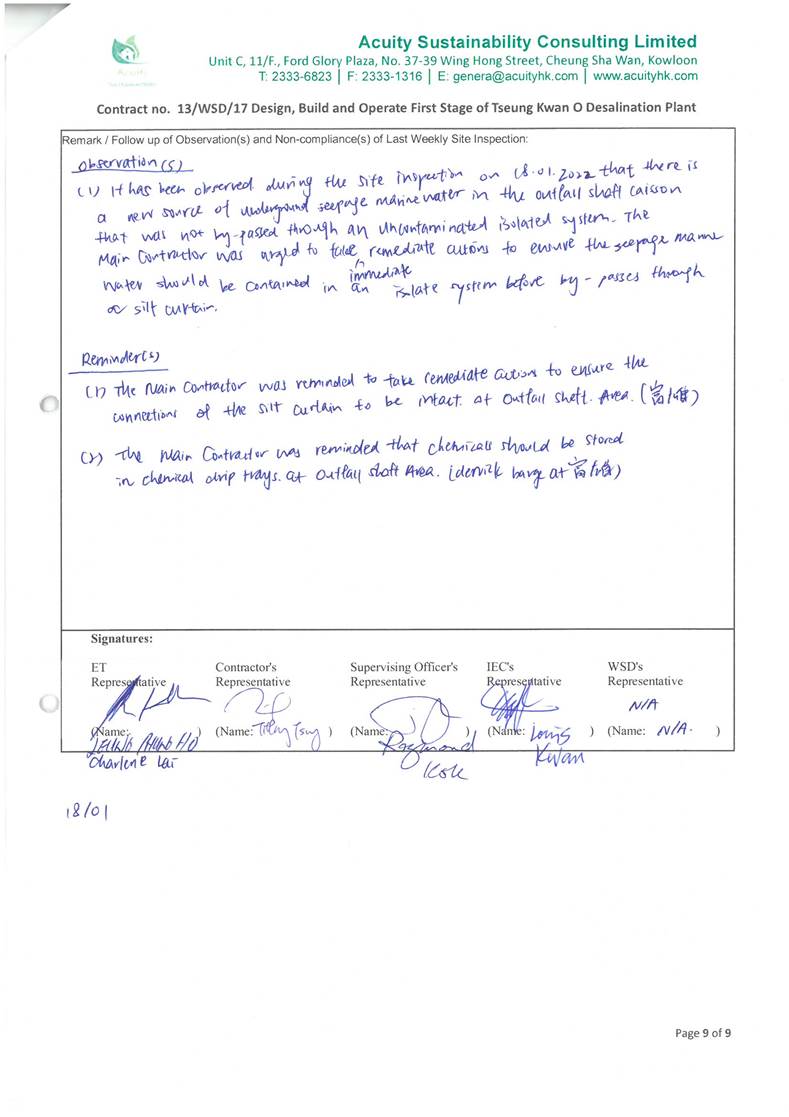 Acuity Sustainability Consulting Limited
Unit C, 11/F., Ford Glory Plaza, No. 37-39 Wing Hong Street, Cheung Sha Wan, Kowloon
T: 2333-6823 | F: 2333-1316 | E: genera@acuityhk.com | www.acuityhk.com
Acuity
Contract no. 13/WSD/17 Design, Build and Operate First Stage of Tseung Kwan O Desalination Plant
Remark / Follow up of Observation(s) and Non-compliance(s) of Last Weekly Site Inspection:
Observation(s)
(1) It has been observed during the site inspection on 18.01.2022 that there is
a new source of underground seepage marine water in the outfall shaft caisson
that was not by-passed through an uncontaminated isolated system. The
Main Contractor was urged to take immediate remediate actions to ensure the seepage marine
water should be contained in an isolate system before by-passes through
silt curtain.
Reminder(s)
(1) The Main Contractor was reminded to take remediate actions to ensure the
connections of the silt curtain to be intact. At Outfall shaft. Area.
(2) The Main Contractor was reminded that chemicals should be stored
in chemical drip trays. at Outfall shaft Area. barge at
Signatures:
ET Representative
Contractor's Representative
Supervising Officer's Representative
IEC's Representative
WSD's Representative
N/A
(Name: )
(Name: Tsuy )
(Name: Raymond Kok )
(Name: Louis Kwan )
(Name: N/A. )
Charlene Lai
18/01
Page 9 of 9